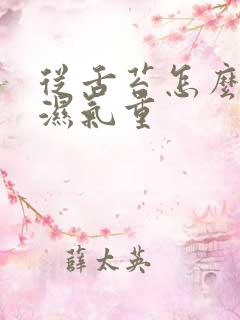 從舌苔怎麼
濕氣重
薛太英